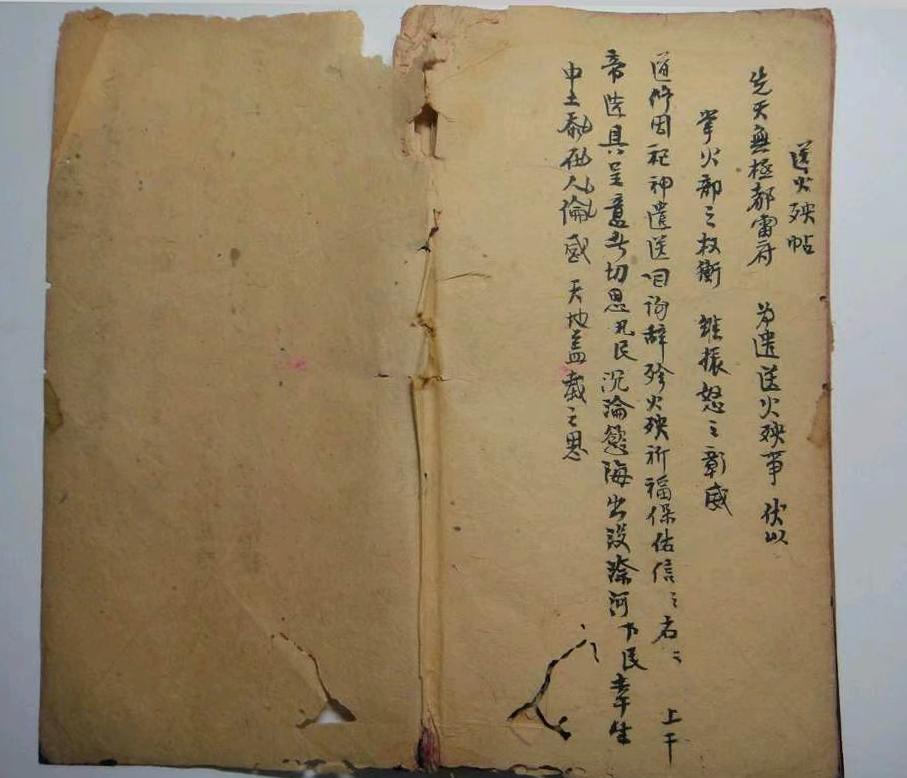 送火殃帖
先天無極都雷府 為遣送火殃事 伏以
掌火部之权衡 雖振怒之彰威
道修因祀神遣送回 辞 火殃祈福保佑信〻名〻 上干
帝造具呈意者切思凡民沉淪慾海出没 河下民幸生
中土 在人倫感 天地盖载之恩